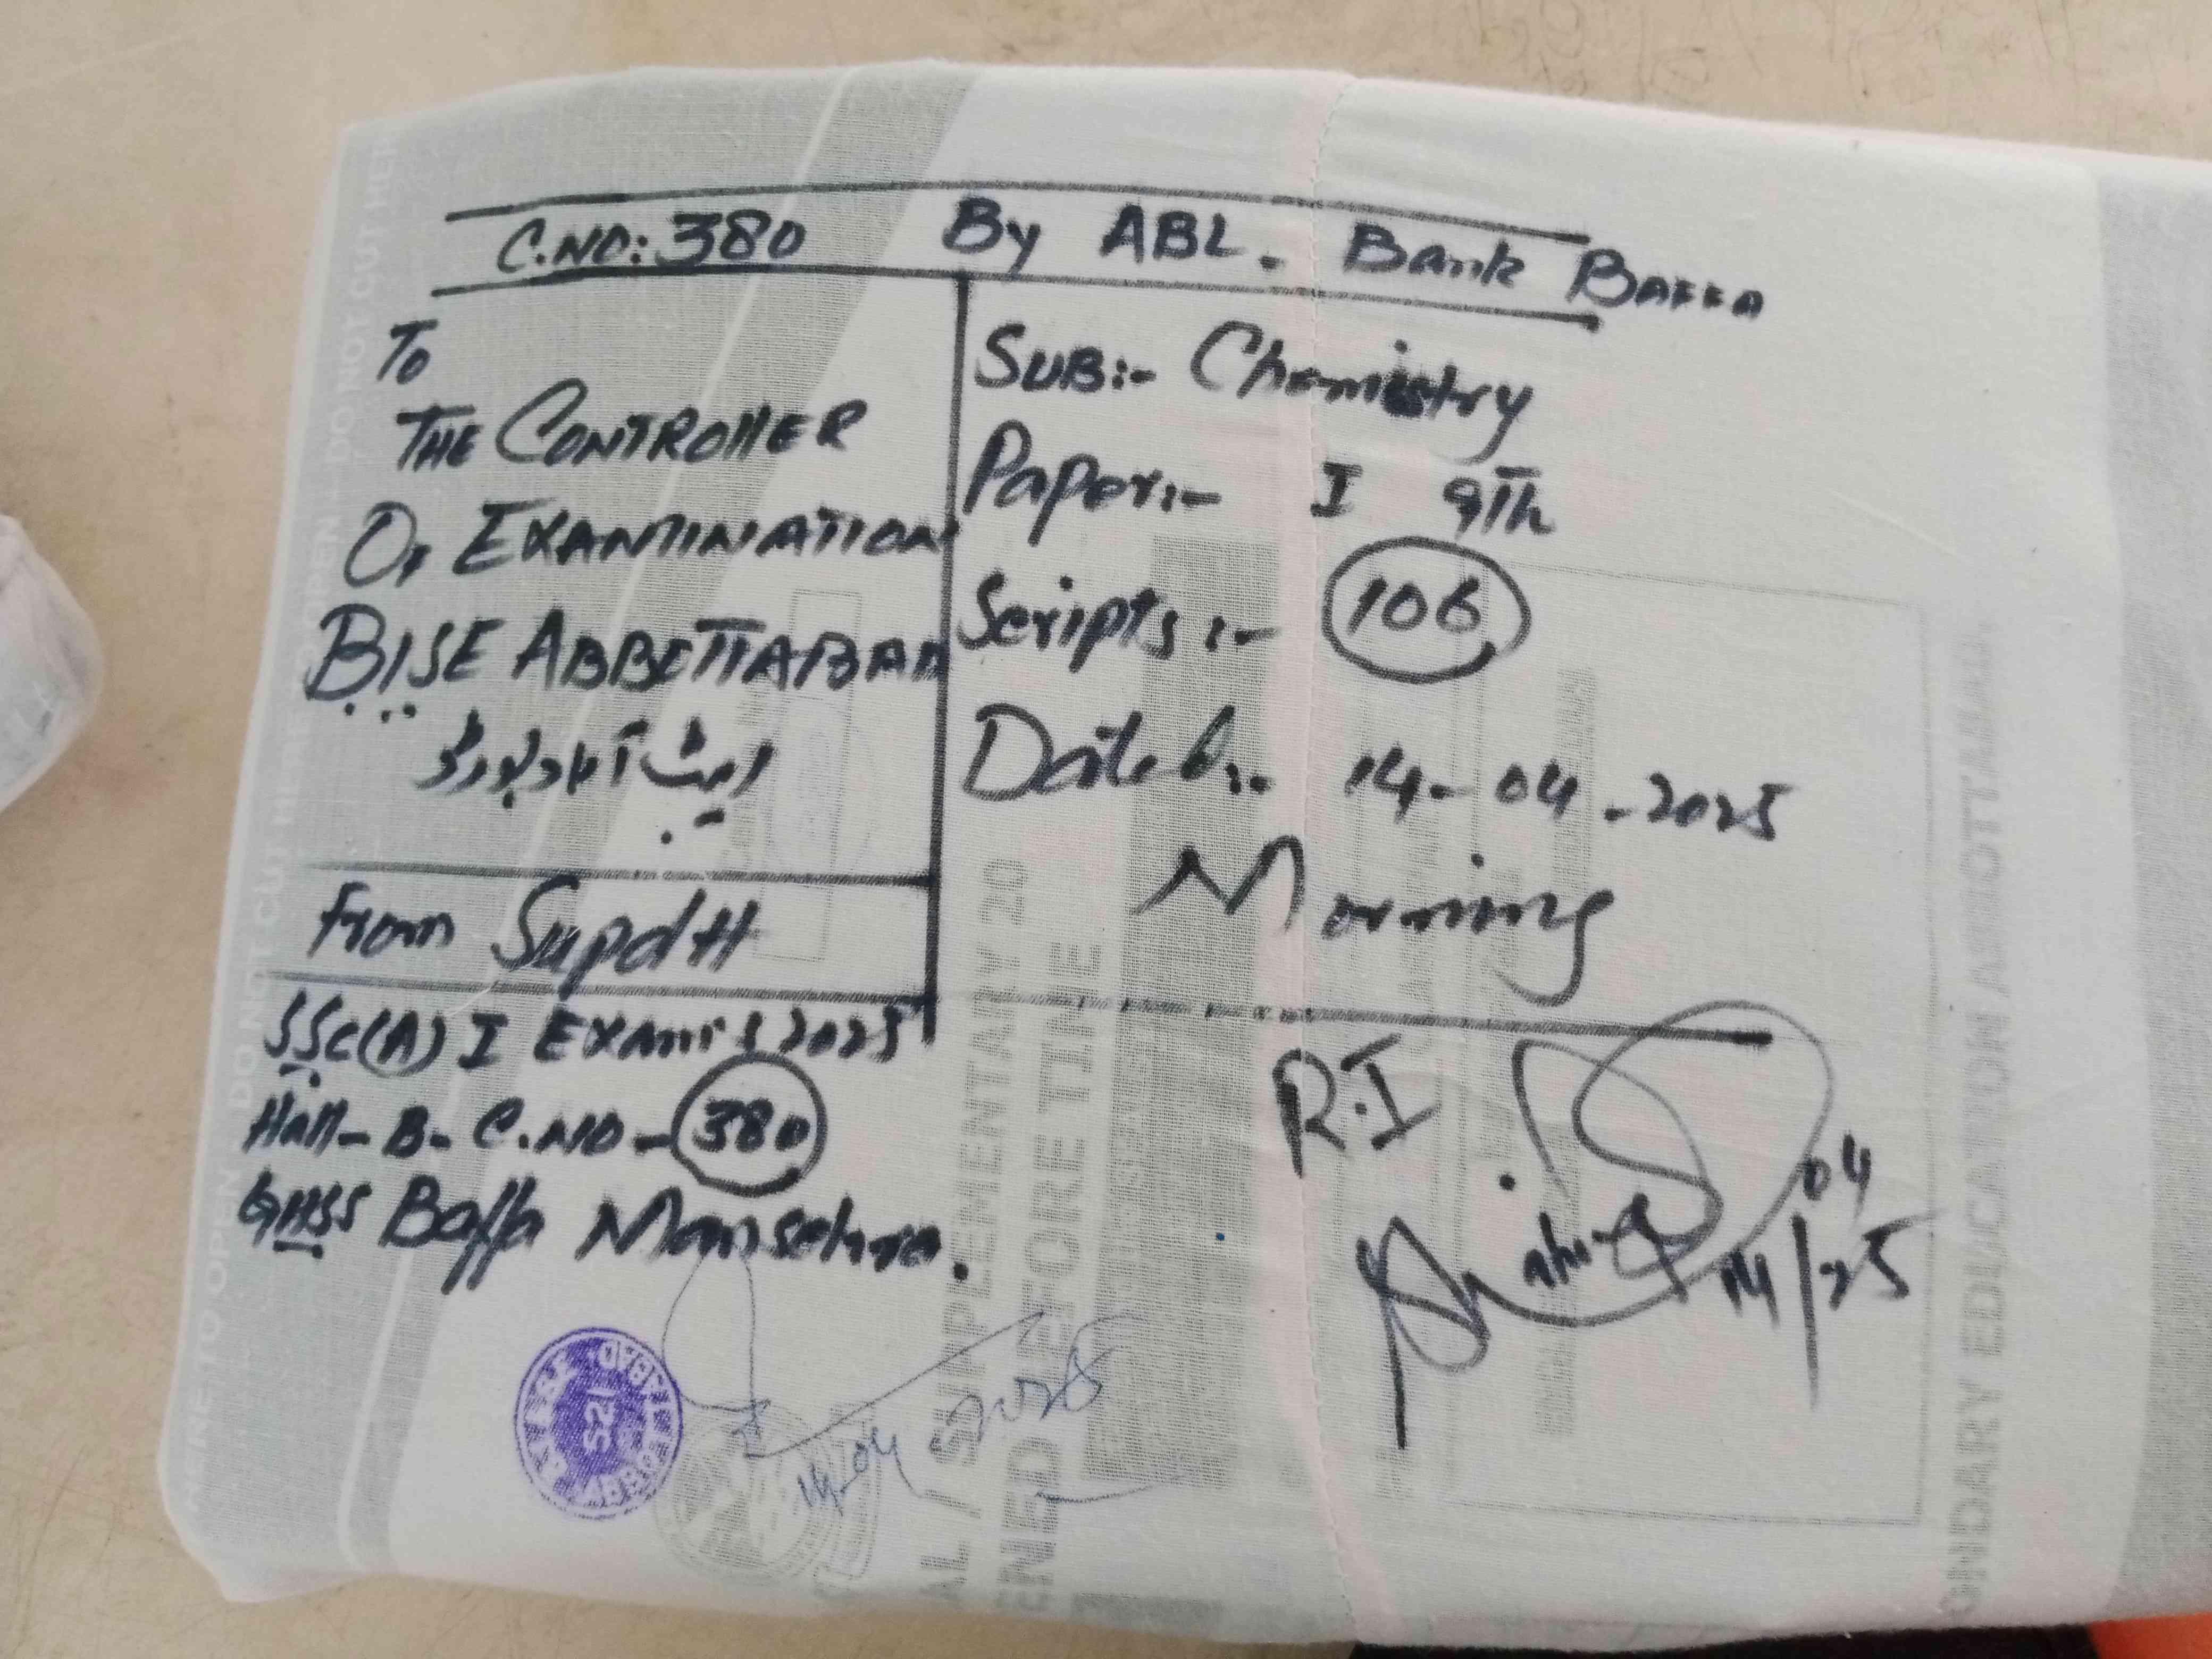 C.NO: 380 By ABL. Bank BAFFA
To
THE CONTROLLER
OF EXAMINATION
BISE ABBOTTABAD
ایبٹ آباد بورڈ
SUB:- Chemistry
Paper:- I 9Th
Scripts:- 106
Dated:. 14-04-2025
Morning
From Supdtt
SSC(A) I EXAMS 2025
Hall-B- C.NO- 380
GHSS Baffa Mansehra.
R.I
04
14/25
14-04-2025
521
DO NOT CUT HERE
TO OPEN DO NOT CUT HERE
AL / SUPPLEMENTARY 20
FORE TIME
ONDARY EDUCATION ABBOTTABAD